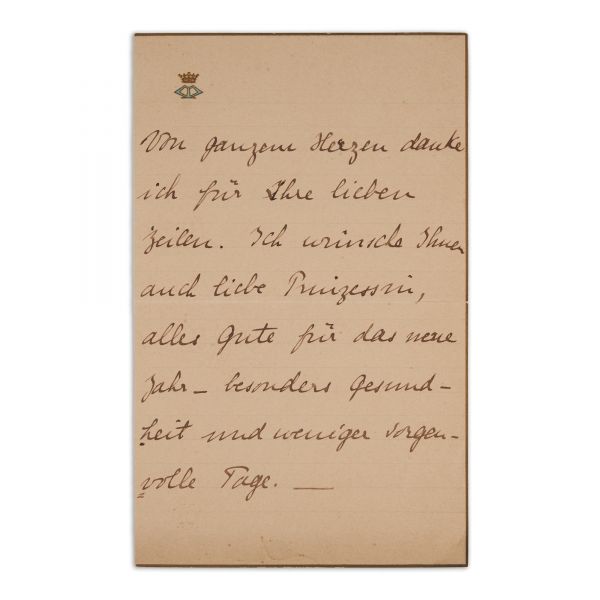 Von ganzem Herzen danke
ich für Ihre lieben
Zeilen. Ich wünsche Ihnen
auch liebe Prinzessin,
alles Gute für das neue
Jahr – besonders Gesund-
heit und weniger sorgen-
volle Tage. —